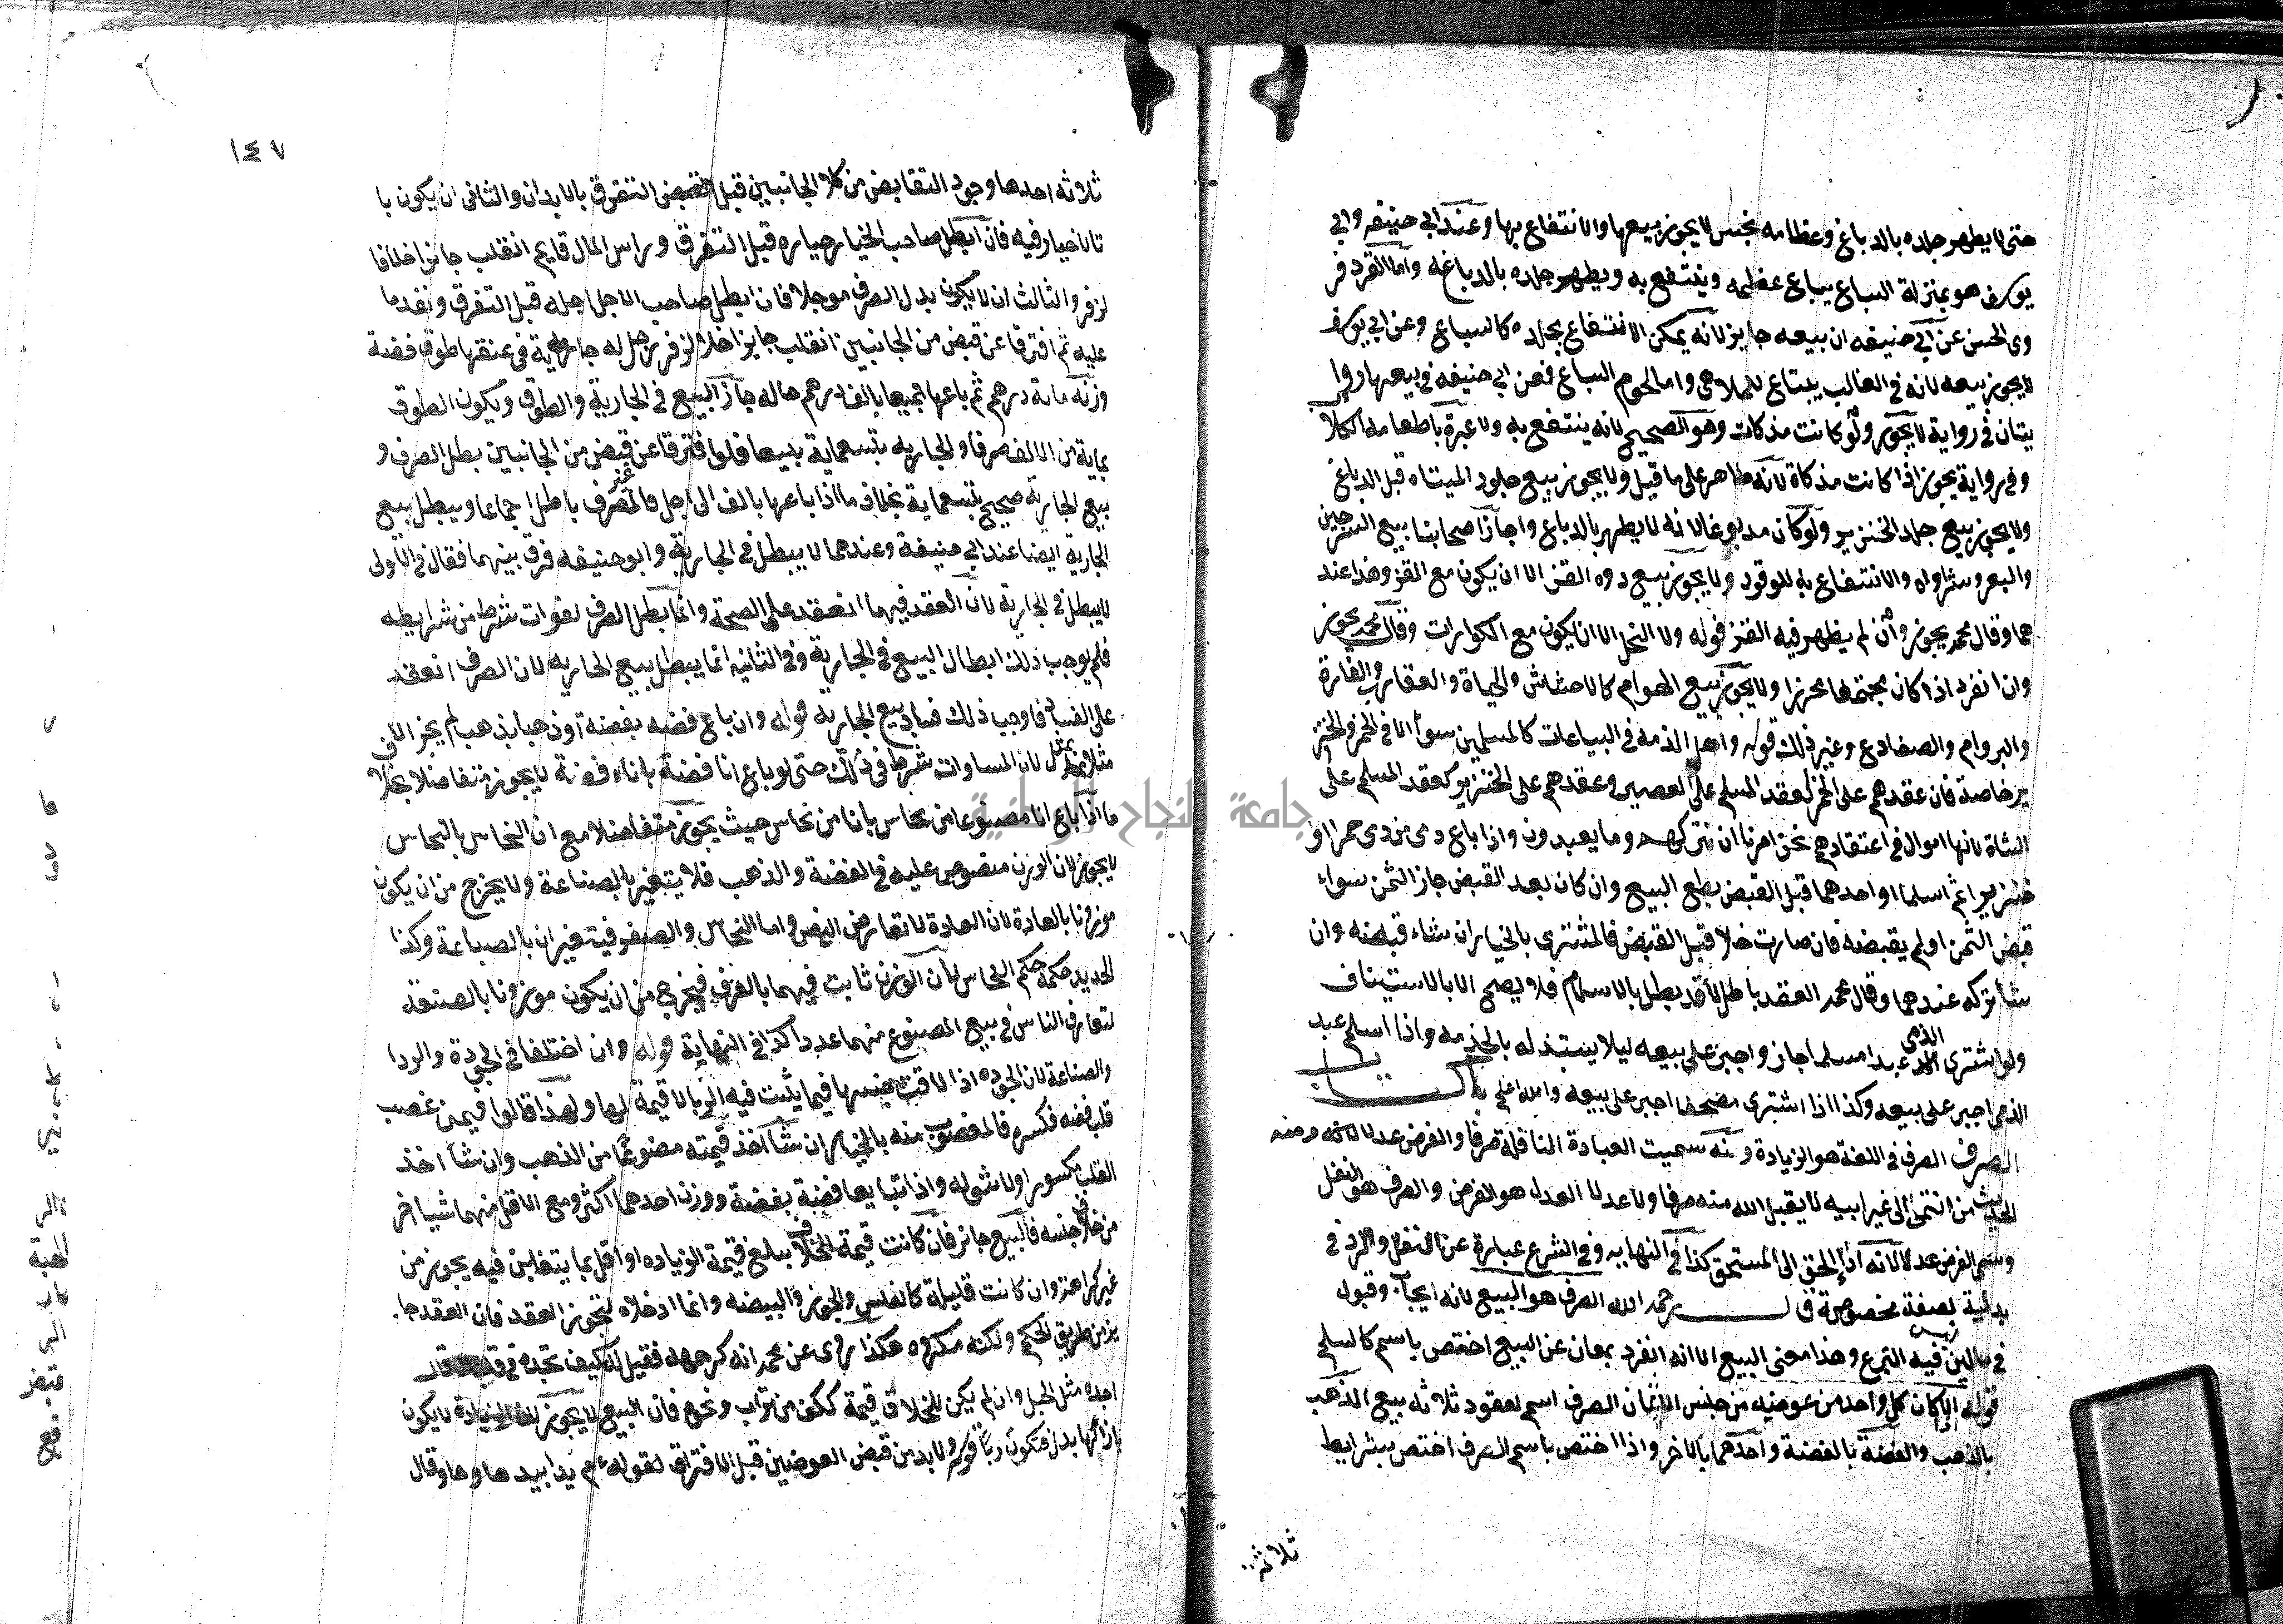 حتى لا يطهر جلده بالدباغ وعظامه نجس لا يجوز بيعها والانتفاع بها وعند ابي حنيفه وابي
يوسف هو بمنزلة السباع يباع عظمه وينتفع به ويطهر جلده بالدباغه واما القرد فر
وى الحسن عن ابي حنيفه ان بيعه جايز لانه يمكن الانتفاع بجلده كالسباع وعن ابي يوسف
لا يجوز بيعه لانه في الغالب يبتاع للملاهي واما لحوم السباع فعن ابي حنيفه في بيعها روا
يتان في رواية لا يجوز ولو كانت مذكات وهو الصحيح لانه ينتفع به ولا عبرة باطعامه الكلا
وفي رواية يجوز اذا كانت مذكاة لانه طاهر على ما قيل ولا يجوز بيع جلود الميتاه قبل الدباغ
ولا يجوز بيع جلد الخنزير ولو كان مدبوغا لانه لا يطهر بالدباغ واجاز اصحابنا بيع السرجين
والبعر وشراوه والانتفاع به للوقود ولا يجوز بيع دود القز الا ان يكون مع القز وهذا عند
هما وقال محمد يجوز وان لم يظهر فيه القز قوله ولا النحل الا ان يكون مع الكوارات وقال محمد يجوز
وان انفرد اذا كان مجتمعا محرزا ولا يجوز بيع الهوام كالاحشاش والحياة والعقارب والفارة
والبروام والضفادع وغير ذلك قوله واهل الذمه في البياعات كالمسلمين سواء الا في الخمر والخنز
ير خاصة فان عقدهم على الخمر كعقد المسلم على العصير وعقدهم على الخنزير كعقد المسلم على
الشاة لانها اموال في اعتقادهم نحن امرنا ان نتركهم وما يعبدون واذا باع ذمي من ذمي خمرا او
خنزيرا ثم اسلما او احدهما قبل القبض بطل البيع وان كان بعد القبض جاز الثمن سواء
قبض الثمن او لم يقبضه فان صارت خلا قبل القبض فالمشتري بالخيار ان شاء قبضه وان
شا تركه عندهما وقال محمد العقد باطل لانه بطل بالاسلام فلا يصح الا بالاستيناف
ولو اشترى الذمي عبدا مسلما جاز واجبر على بيعه ليلا يستبذله بالخدمه واذا اسلم عبد
الذمي اجبر على بيعه وكذا اذا اشترى مصحفا اجبر على بيعه والله اعلم كتاب
الصرف الصرف في اللغة هو الزيادة ومنه سميت العبادة النافلة صرفا والفرض عدلا لانه ومنه
الحديث من انتمى الى غير ابيه لا يقبل الله منه صرفا ولا عدلا العدل هو الفرض والصرف هو النفل
وسمي الفرض عدلا لانه اداء الحق الى المستحق كذا في النهايه وفي الشرع عبارة عن النقل والرد في
بدلية بصفة مخصوصة قال رحمه الله الصرف هو البيع لانه ايجاب وقبول
في مالين فيه التبرع وهذا معنى البيع الا انه انفرد بمعان عن البيع اختص باسم كالسلم
قوله اذا كان كل واحد من عوضيه من جنس الاثمان الصرف اسم لعقود ثلاثه بيع الذهب
بالذهب والفضه بالفضة واحدهما بالاخر واذا اختص باسم الصرف اختص بشرايط
ثلاثه
١٤٧
ثلاثه احدها وجود التقابض من كلا الجانبين قبل التفرق بالابدان والثاني ان يكون با
تا لا خيار فيه فان ابطل صاحب الخيار خياره قبل التفرق وراس المال قايم انقلب جائزا خلافا
لزفر والثالث ان لا يكون بدل الصرف موجلا فان ابطل صاحب الاجل اجله قبل التفرق ونقد ما
عليه ثم افترقا عن قبض من الجانبين انقلب جايزا خلافا لزفر رجل له جارية في عنقها طوق فضة
وزنه مائة درهم ثم باعها جميعا بالف درهم حاله جاز البيع في الجارية والطوق ويكون الطوق
بماية من الالف صرفا والجاريه بتسعماية بيعا فلو افترقا عن غير قبض من الجانبين بطل الصرف و
بيع الجارية صحيح بتسعماية بخلاف ما اذا باعها بالف الى اجل فالصرف باطل اجماعا ويبطل بيع
الجارية ايضا عند ابي حنيفة وعندهما لا يبطل في الجارية وابو حنيفه فرق بينهما فقال في الاولى
لا يبطل في الجارية لان العقد فيهما انعقد على الصحة وانما بطل الصرف لفوات شرط من شرايطه
فلم يوجب ذلك ابطال البيع في الجارية وفي الثانيه انما يبطل بيع الجاريه لان الصرف انعقد
على الفساد فاوجب ذلك فساد بيع الجاريه قوله وان باع فضه بفضة او ذهبا بذهب لم يجز الا
مثلا بمثل لان المساوات شرط في ذلك حتى لو باع انا فضة باناء فضة لا يجوز متفاضلا بخلاف
ما اذا باع انا مصنوعا من نحاس بانا من نحاس حيث يجوز متفاضلا مع ان النحاس بالنحاس
لا يجوز لان الوزن منصوص عليه في الفضة والذهب فلا يتغير بالصناعة ولا يخرج من ان يكون
موزونا بالعادة لان العادة لا تعارض النص واما النحاس والصفر فيتغيران بالصناعة وكذا
الحديد حكمه حكم النحاس لان الوزن ثابت فيهما بالعرف فيخرج من ان يكون موزونا بالصنعة
لتعارف الناس في بيع المصنوع منهما عددا كذا في النهاية قوله وان اختلفا في الجودة والردا
والصناعة لان الجوده اذا لاقت جنسها فيما يثبت فيه الربا لا قيمة لها ولهذا قالوا فيمن غصب
قلب فضه فكسره فالمغصوب منه بالخيار ان شاء اخذ قيمته مصنوعا من الذهب وان شاء اخذ
القلب مكسورا ولا شي له واذا تبايعا فضة بفضة ووزن احدهما اكثر ومع الاقل منهما شيا اخر
من خلاف جنسه فالبيع جائز فان كانت قيمة الخلاف يبلغ قيمة الزياده او اقل بما يتغابن فيه يجوز من
غير كراهة وان كانت قليلة كالفلس والجوز والبيضه وانما ادخلاه ليجوز العقد فان العقد جا
يز من طريق الحكم ولكنه مكروه هكذا روى عن محمد انه كرهه فقيل له كيف تجده في قلبك قال
اجده مثل الجبل وان لم يكن للخلاف قيمة ككف من تراب ونحوه فان البيع لا يجوز لان الزيادة لا يكون
بازائها بدل فتكون ربا قوله ولا بد من قبض العوضين قبل الافتراق لقوله عم يدا بيد ها وها وقال
جامعة النجاح الوطنية